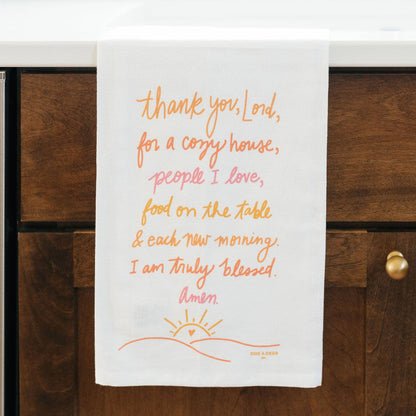 thank you, Lord,
for a cozy house,
people I love,
food on the table
& each new morning.
I am truly blessed.
Amen.